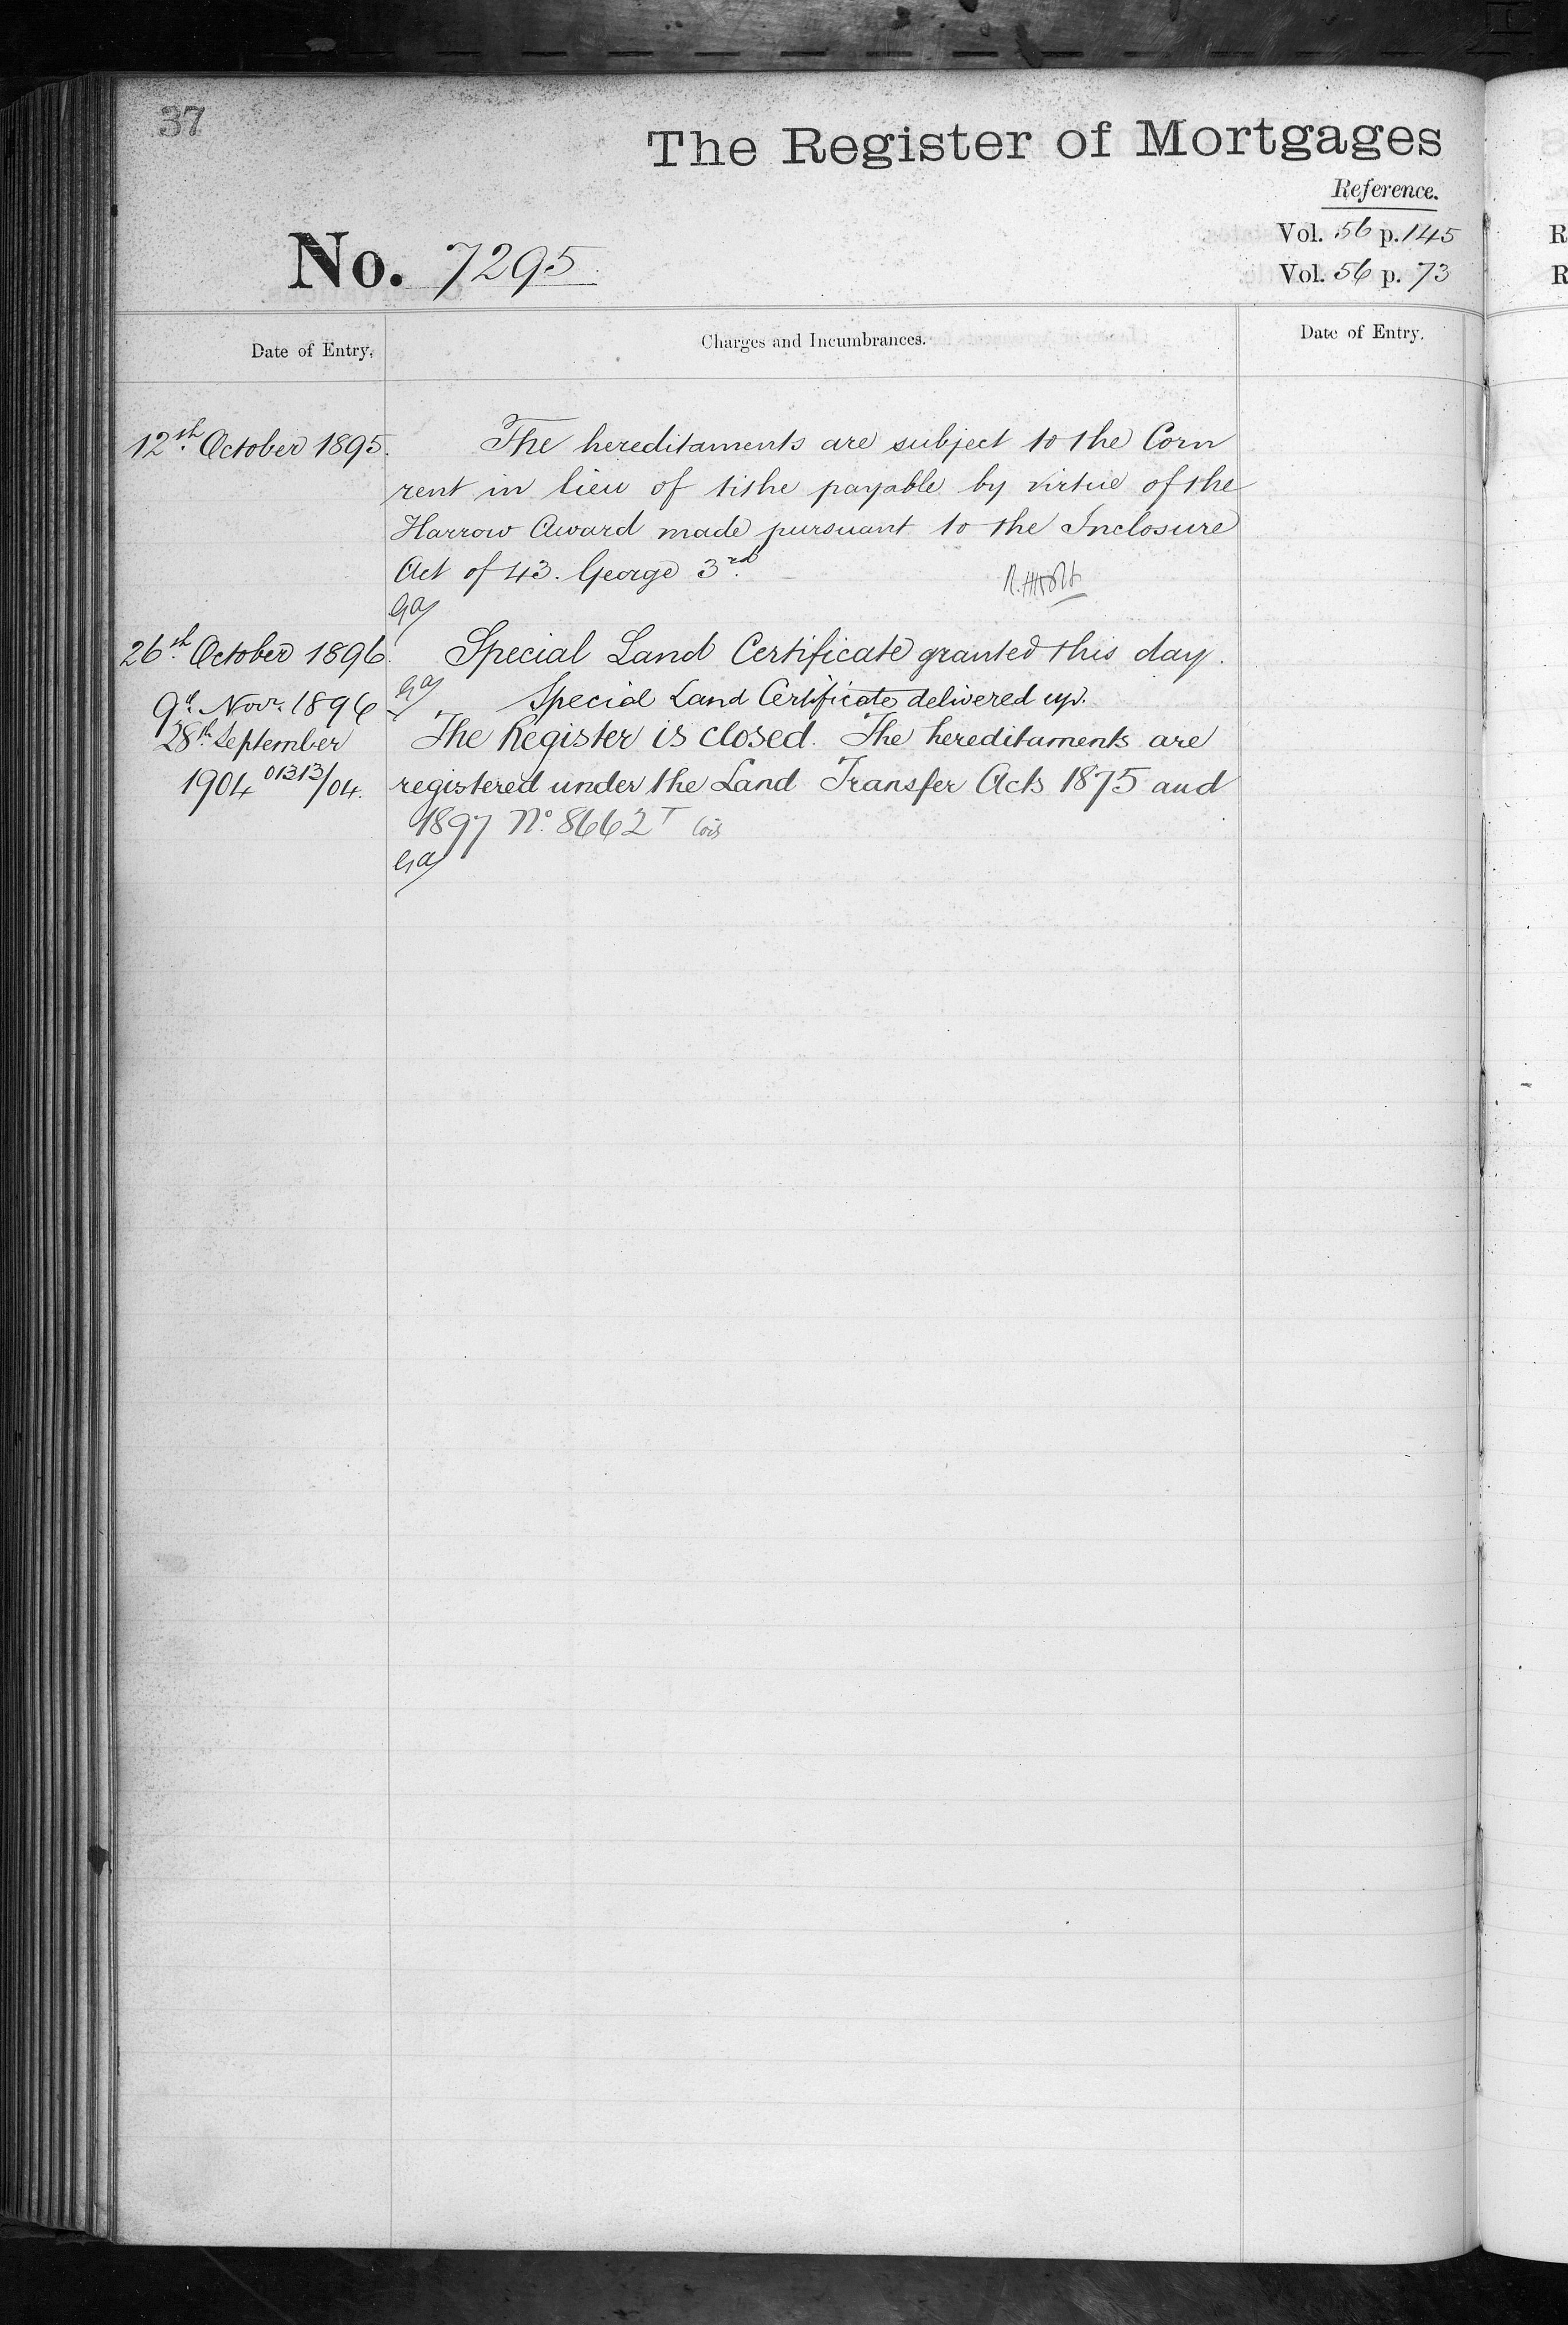 37
The Register of Mortgages
Reference.
Vol. 56 p. 145
No. 7295.
Vol. 56 p. 73
Date of Entry.
Charges and Incumbrances.
Date of Entry.
12th October 1895.
The hereditaments are subject to the Corn
rent in lieu of tithe payable by virtue of the
Harrow Award made pursuant to the Inclosure
Act of 43. George 3rd
26th October 1896.
Special Land Certificate granted this day.
9th Novr. 1896
Special Land Certificate delivered up.
28th September
The Register is closed. The hereditaments are
1904 01313/04.
registered under the Land Transfer Acts 1875 and
1897 No. 8662T
R
R